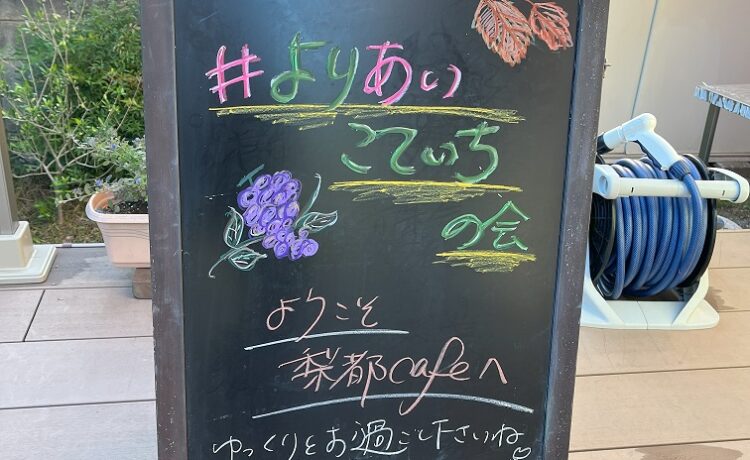 #よりあい
こていち
の会
ようこそ
梨都cafeへ
ゆっくりとお過ごし下さいね♡